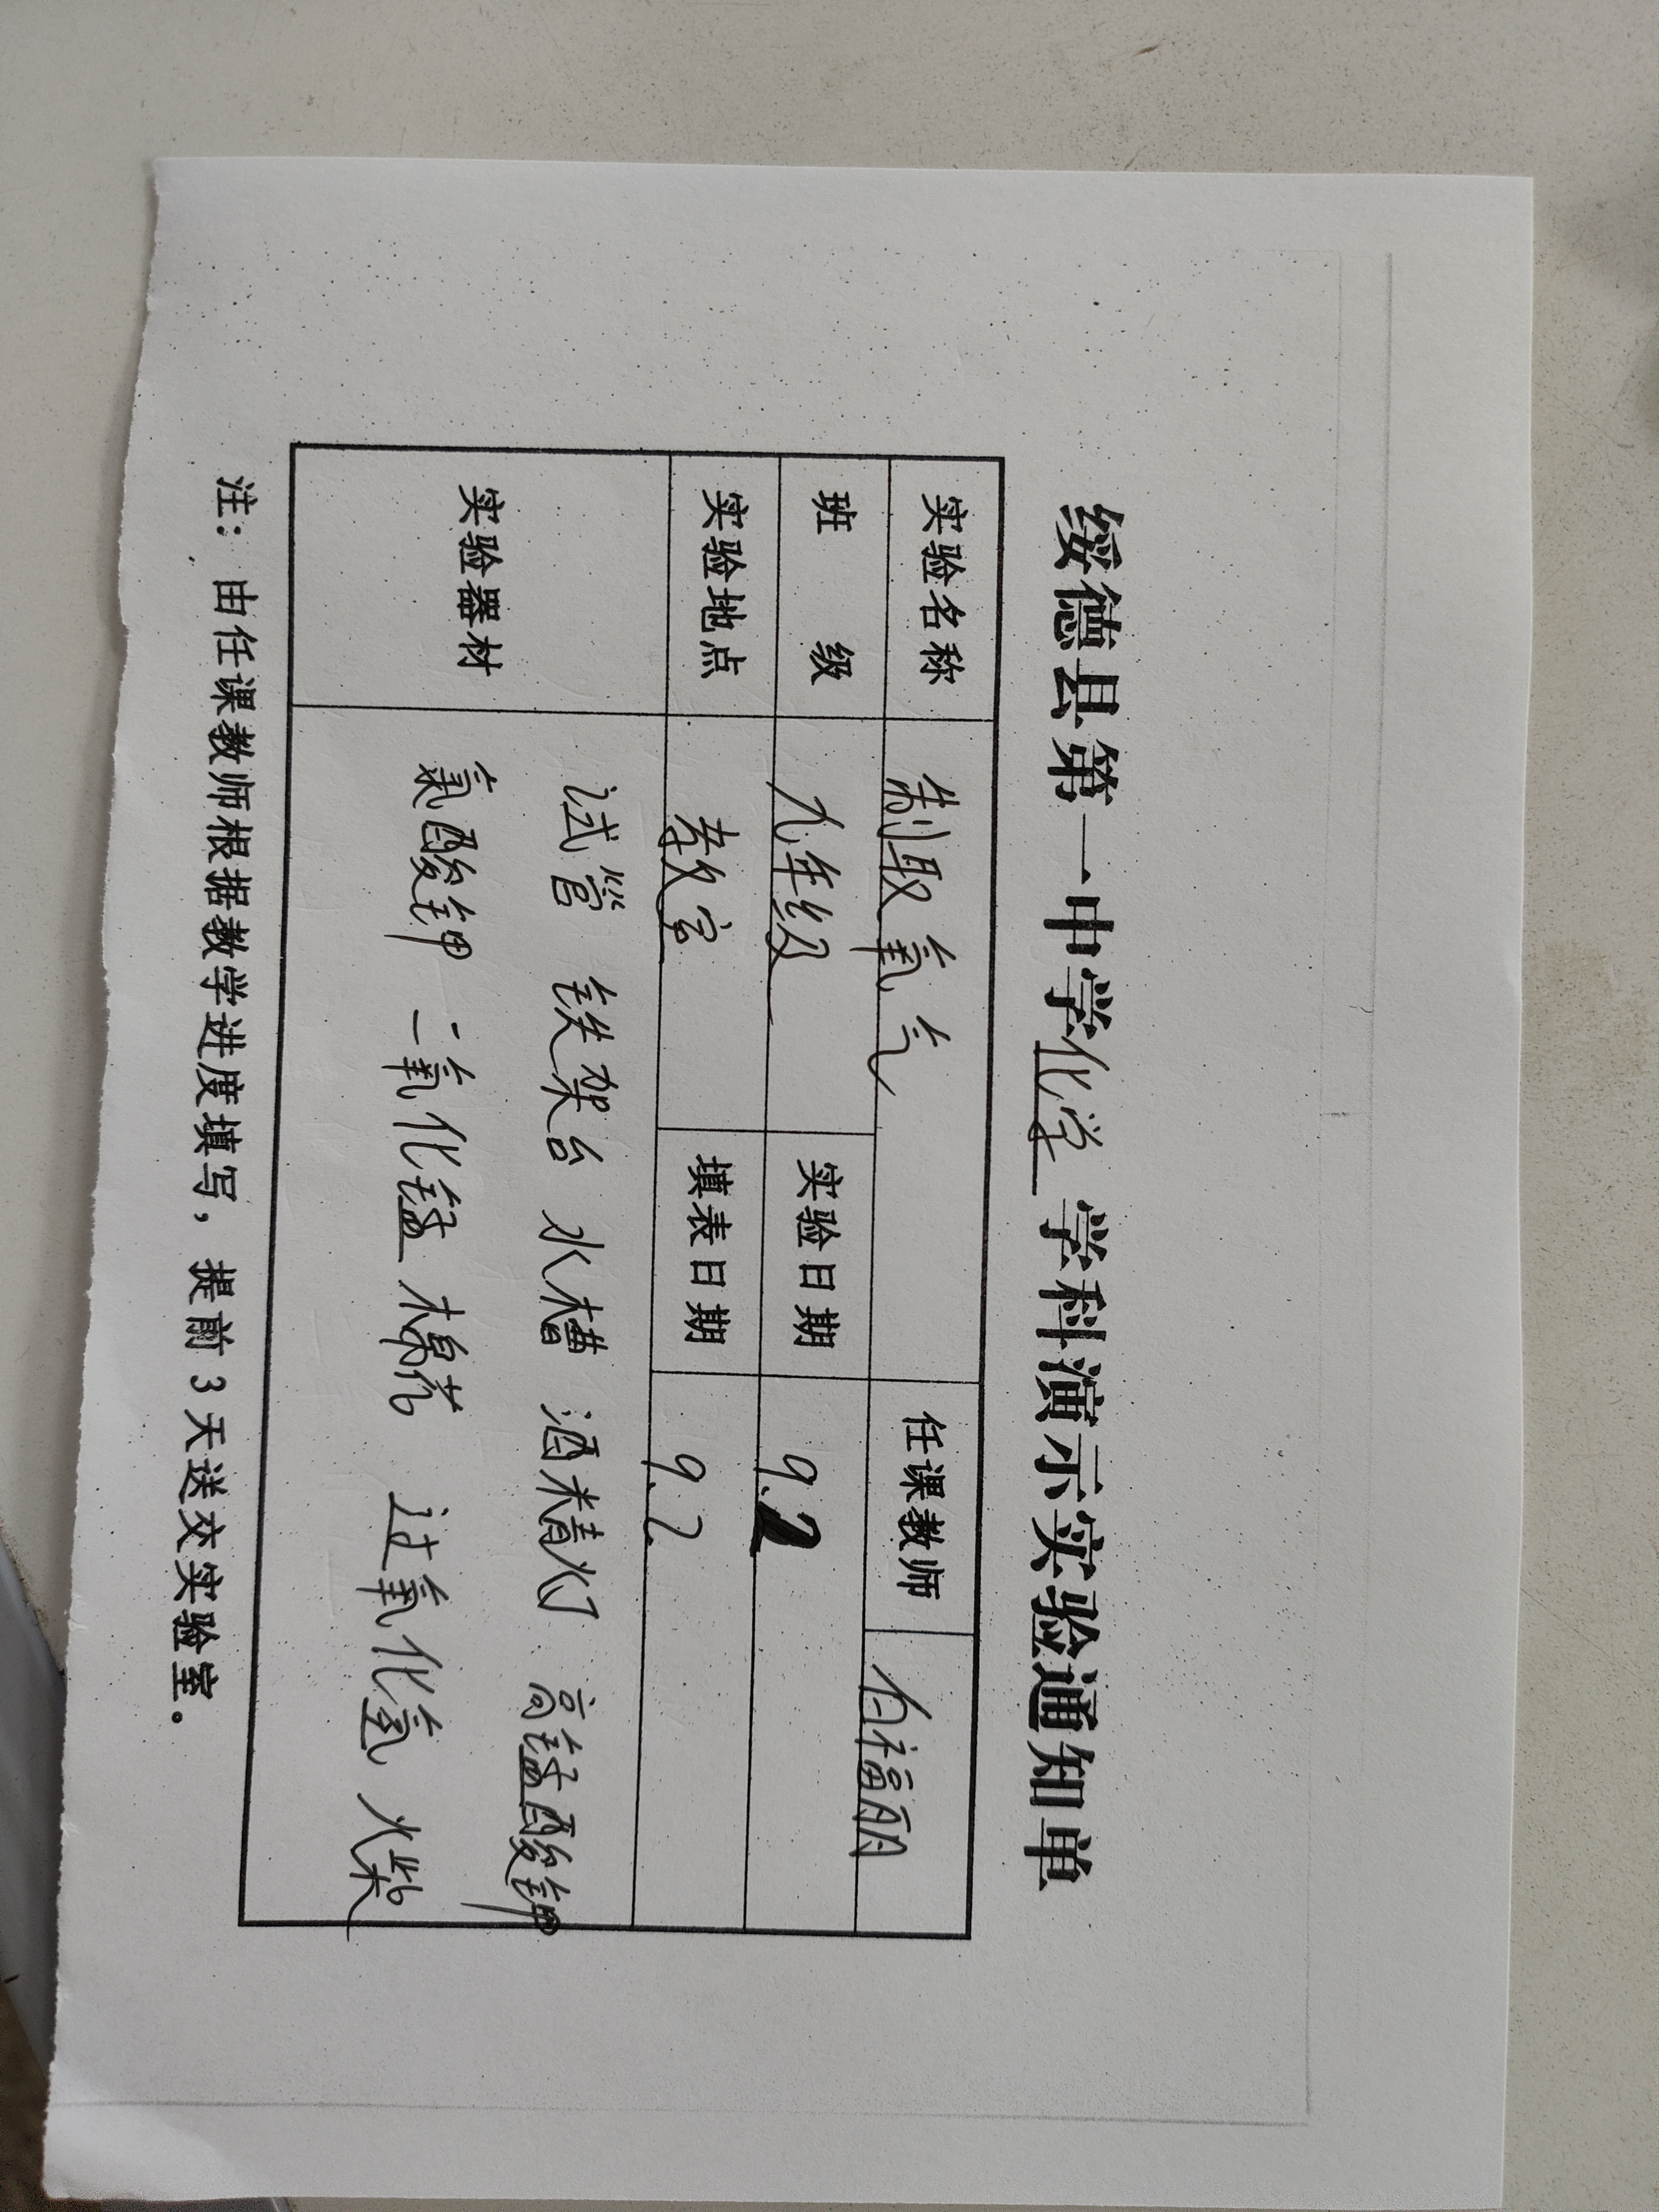 绥德县第一中学化学学科演示实验通知单
实验名称 制取氧气 任课教师 白福丽
班 级 九年级 实验日期 9.2
实验地点 教室 填表日期 9.2
实验器材 试管 铁架台 水槽 酒精灯 高锰酸钾
氯酸钾 二氧化锰 棉花 过氧化氢 火柴
注：由任课教师根据教学进度填写，提前3天送交实验室。